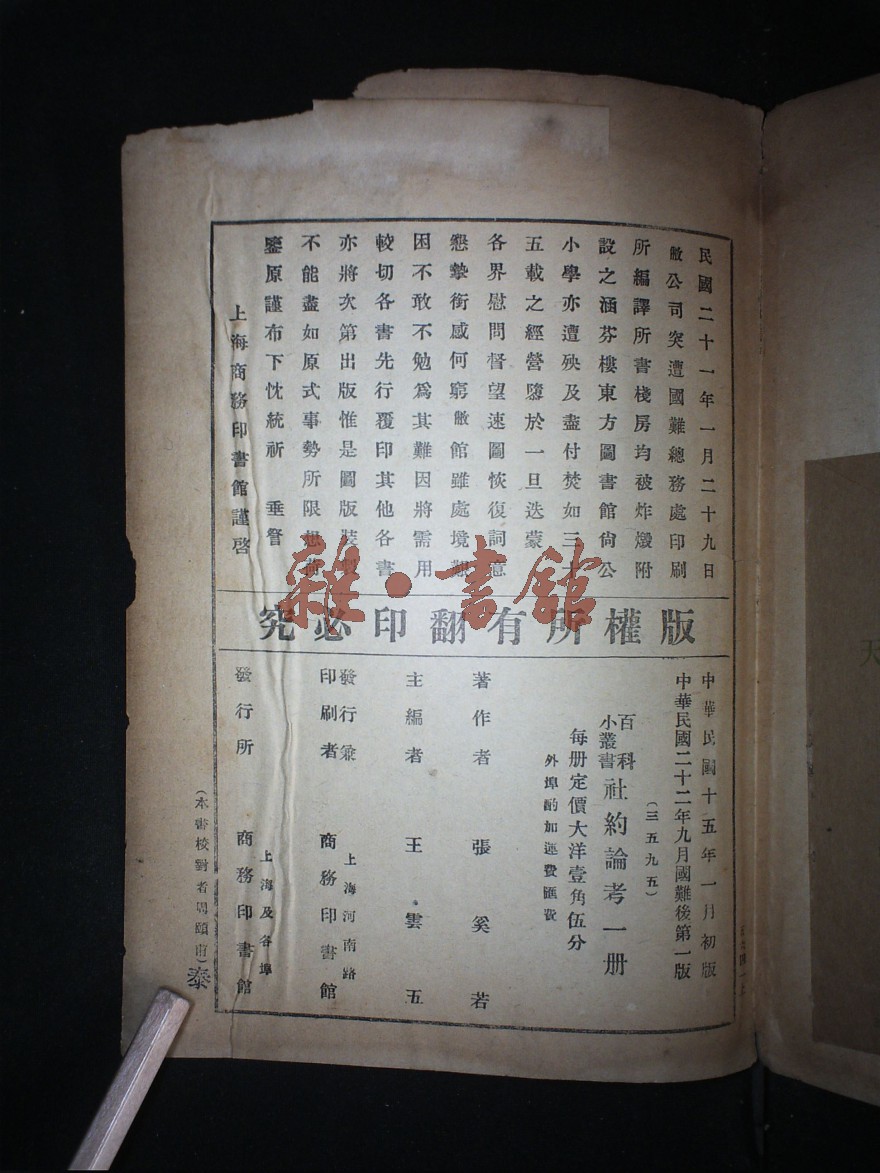 民國二十一年一月二十九日
敝公司突遭國難總務處印刷
所編譯所書棧房均被炸燬附
設之涵芬樓東方圖書館尙公
小學亦遭殃及盡付焚如三十
五載之經營隳於一旦迭蒙
各界慰問督望速圖恢復詞意
懇摯銜感何窮敝館雖處境艱
困不敢不勉爲其難因將需用
較切各書先行覆印其他各書
亦將次第出版惟是圖版裝
不能盡如原式事勢所限想荷
鑒原謹布下忱統祈 垂詧
上海商務印書館謹啓
版權所有翻印必究
中華民國十五年一月初版
中華民國二十二年九月國難後第一版
(三五九五)
百科小叢書 社約論考一册
每册定價大洋壹角伍分
外埠酌加運費匯費
著作者 張奚若
主編者 王雲五
發行兼印刷者 上海河南路 商務印書館
發行所 上海及各埠 商務印書館
(本書校對者周頤甫)
泰
雜·書館
天